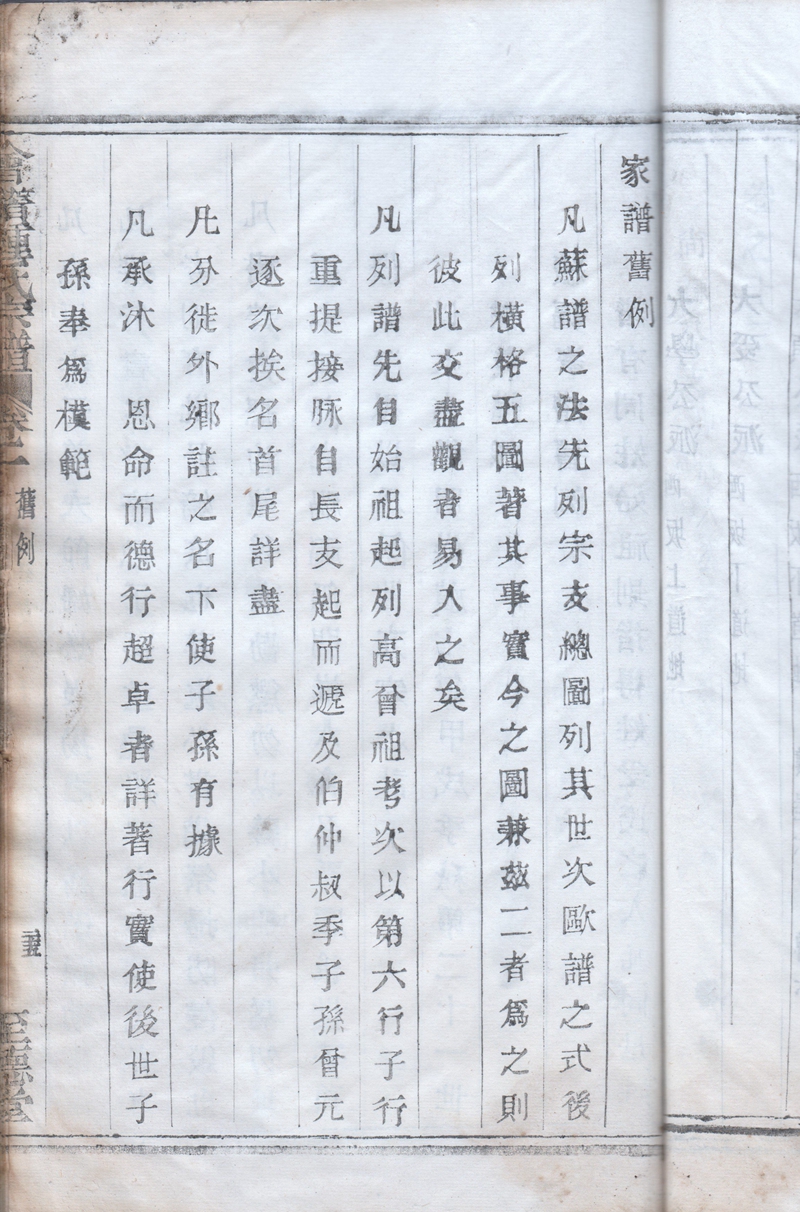 家譜舊例
凡蘇譜之法先列宗支總圖列其世次歐譜之式後
列橫格五圖著其事實今之圖兼茲二者爲之則
彼此交盡觀者易入之矣
凡列譜先自始祖起列高曾祖考次以第六行子行
重提接脉自長支起而遞及伯仲叔季子孫曾元
逐次挨名首尾詳盡
凡分徙外鄉註之名下使子孫有據
凡承沐　恩命而德行超卓者詳著行實使後世子
孫奉爲模範
氏宗譜
卷一
舊例
至德堂